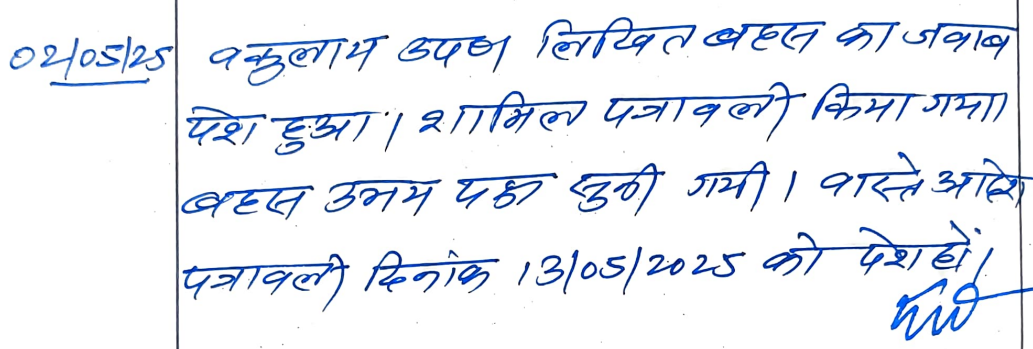 02/05/25 वकुलाय उपण लिखित बहस का जवाब
पेश हुआ। शामिल पत्रावली किया गया।
बहस उभय पक्ष सुनी गयी। वास्ते आदेश
पत्रावली दिनांक 13/05/2025 को पेश हों।